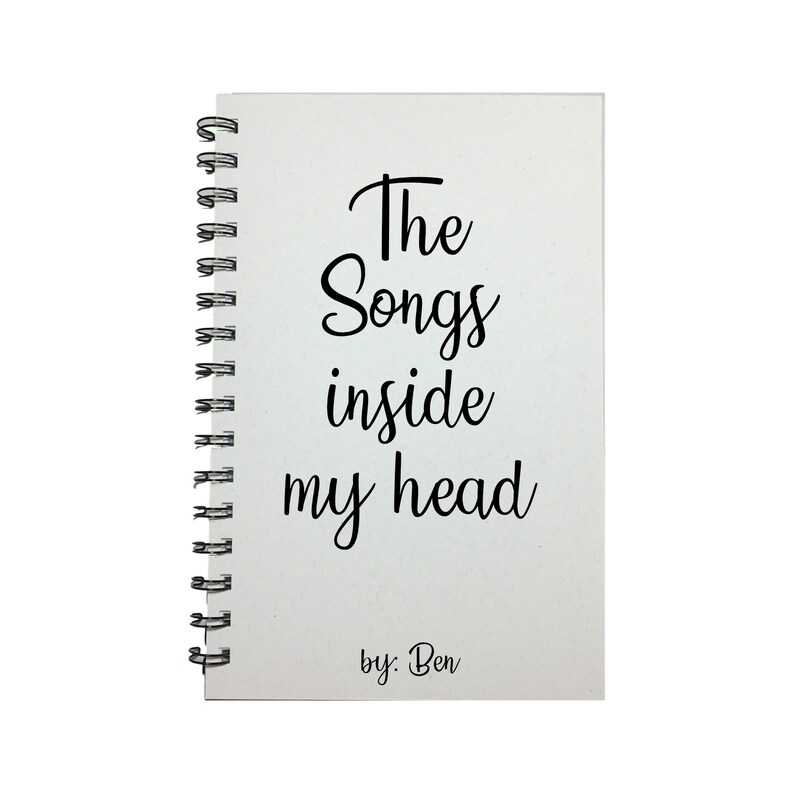 The
Songs
inside
my head
by: Ben